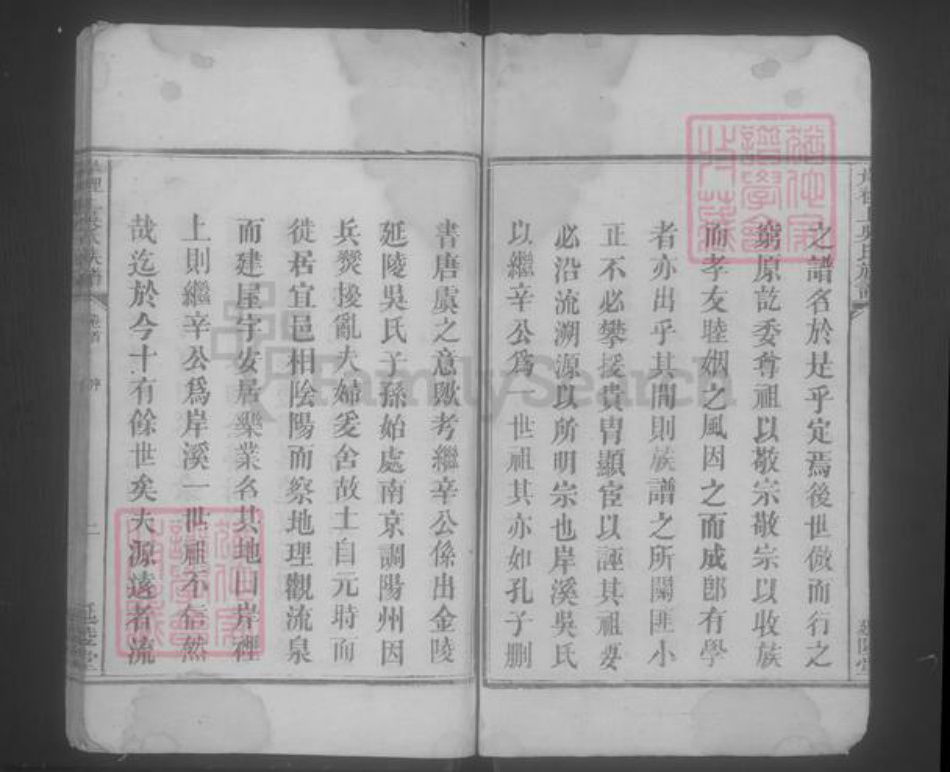 之譜名於是乎定焉後世倣而行之
窮原訖委尊祖以敬宗敬宗以收族
而孝友睦姻之風因之而成卽有學
者亦出乎其間則族譜之所關匪小
正不必攀援貴胄顯宦以誣其祖要
必沿流溯源以所明宗也岸溪吳氏
以繼辛公爲一世祖其亦如孔子刪
書唐虞之意歟考繼辛公係出金陵
延陵吳氏子孫始處南京調陽州因
兵燹擾亂夫婦爰舍故土自元時而
徙居宜邑相陰陽而察地理觀流泉
而建屋宇安居樂業名其地曰岸裡
上則繼辛公爲岸溪一世祖不信然
哉迄於今十有餘世矣夫源遠者流
卷首
序
二
延陵堂
FamilySearch